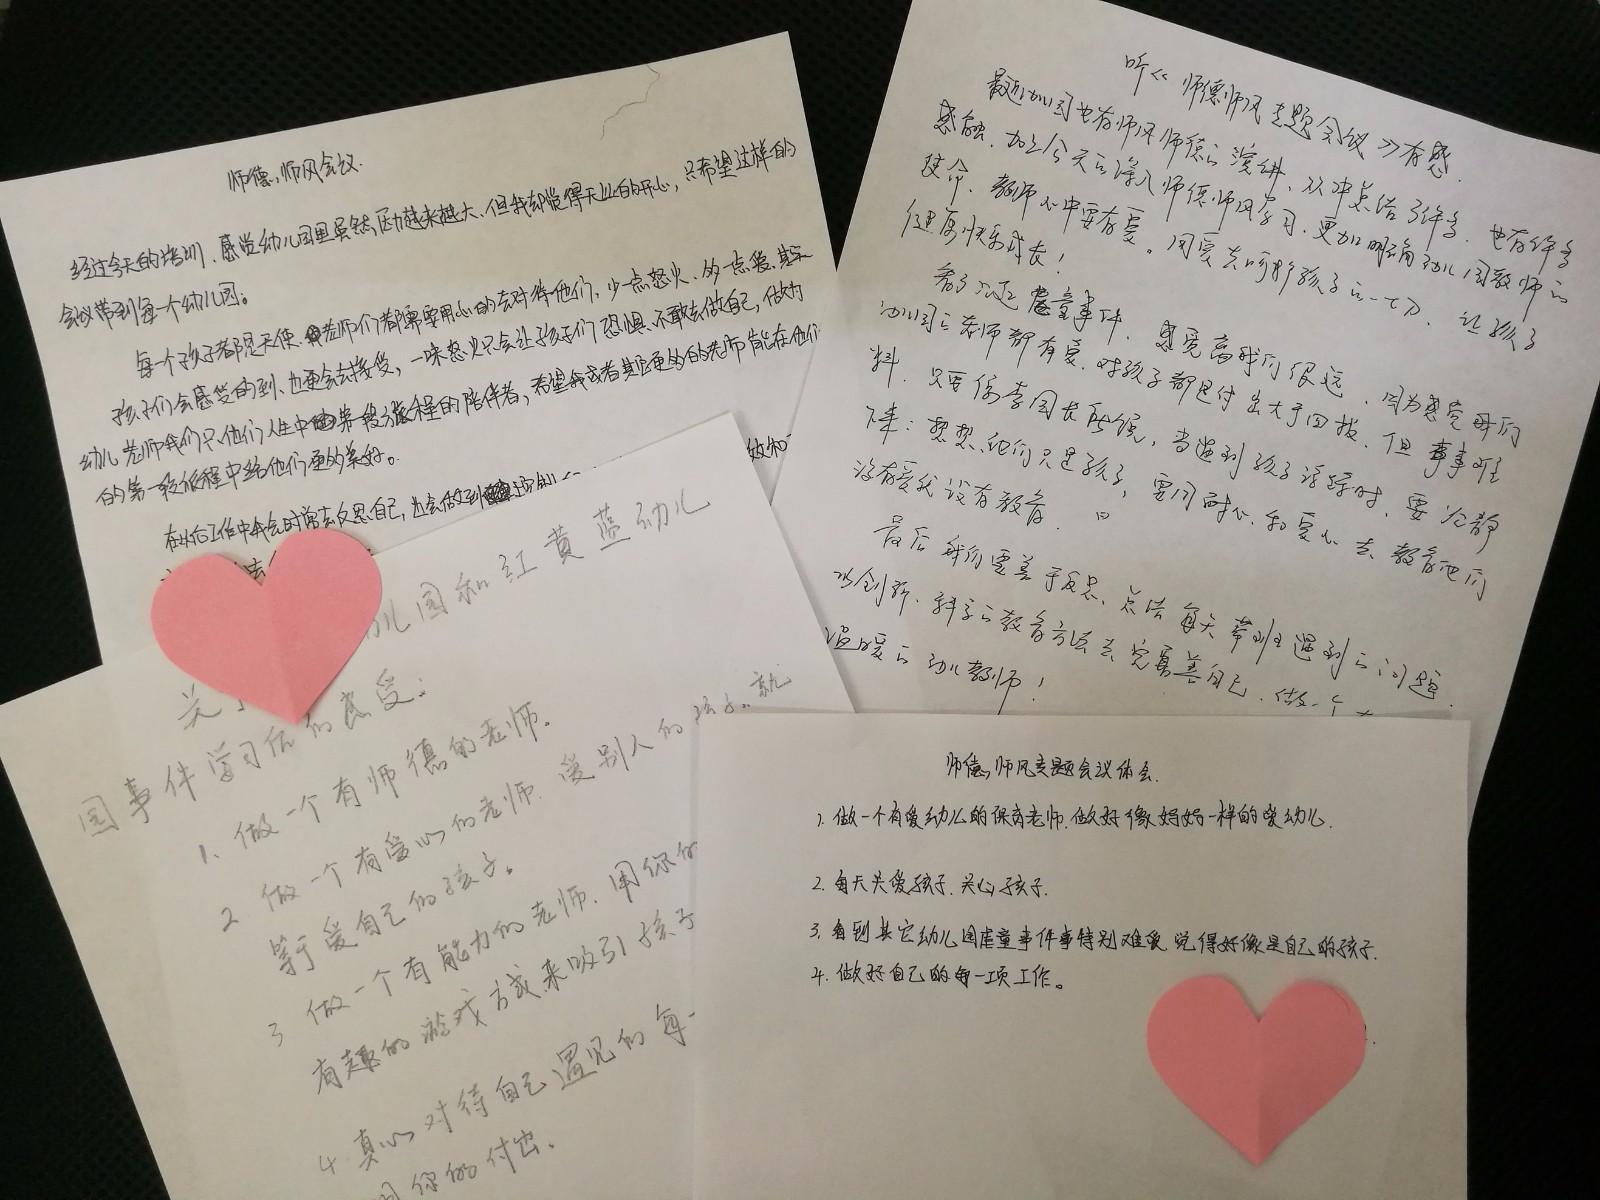 师德，师风会议.
经过今天的培训、感觉幼儿园里虽然压力越来越大、但我却觉得无比的开心，只希望这样的
会议带到每一个幼儿园。
每一个孩子都是天使、老师们都需要用心的去对待他们、少一点怒火、多一点爱、其实
孩子们会感受的到、也更会去接受，一味怒火只会让孩子们恐惧、不敢去做自己，做为
幼儿老师我们只他们人生中第一段旅程的陪伴者，希望我或者其他更多的老师能在他们
的第一段旅程中给他们更多美好。
在以后工作中我会时常去反思自己，也会做到
听《师德师风专题会议》有感
最近幼儿园也有师风师德的演讲、从中总结了许多、也有许多
感触、加上今天的深入师德师风学习、更加明确幼儿园教师的
使命、教师心中要有爱。用爱去呵护孩子的一切、让孩子
健康快乐成长！
看了沉迷虐童事件、感觉离我们很远、因为感觉我们
幼儿园的老师都有爱、对孩子都是付出大于回报、但事事难
料、只要像李园长所说，当遇到孩子淘气时、要冷静
下来：想想、他们只是孩子，要用耐心和爱心去教育他们
没有爱就没有教育。
最后我们要善于反思、总结每天带班遇到的问题
以创新、科学的教育方法去完善自己、做一个
温暖的幼儿教师！
关 幼儿园和红黄蓝幼儿
园事件学习后的感受：
1、做一个有师德的老师。
2 做一个有爱心的老师、爱别人的孩子.就
等于爱自己的孩子。
3 做一个有能力的老师、用你的
有趣的游戏方式来吸引孩子
4 真心对待自己遇见的每一
你的付出、
师德，师风专题会议体会.
1. 做一个有爱幼儿的保育老师.做好像妈妈一样的爱幼儿.
2. 每天关爱孩子.关心孩子.
3. 看到其它幼儿园虐童事件事特别难受 觉得好像是自己的孩子.
4. 做好自己的每一项工作。